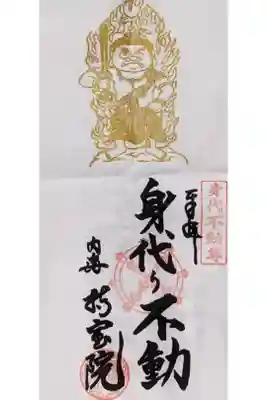 身代不動尊
身代り不動
内海
持宝院